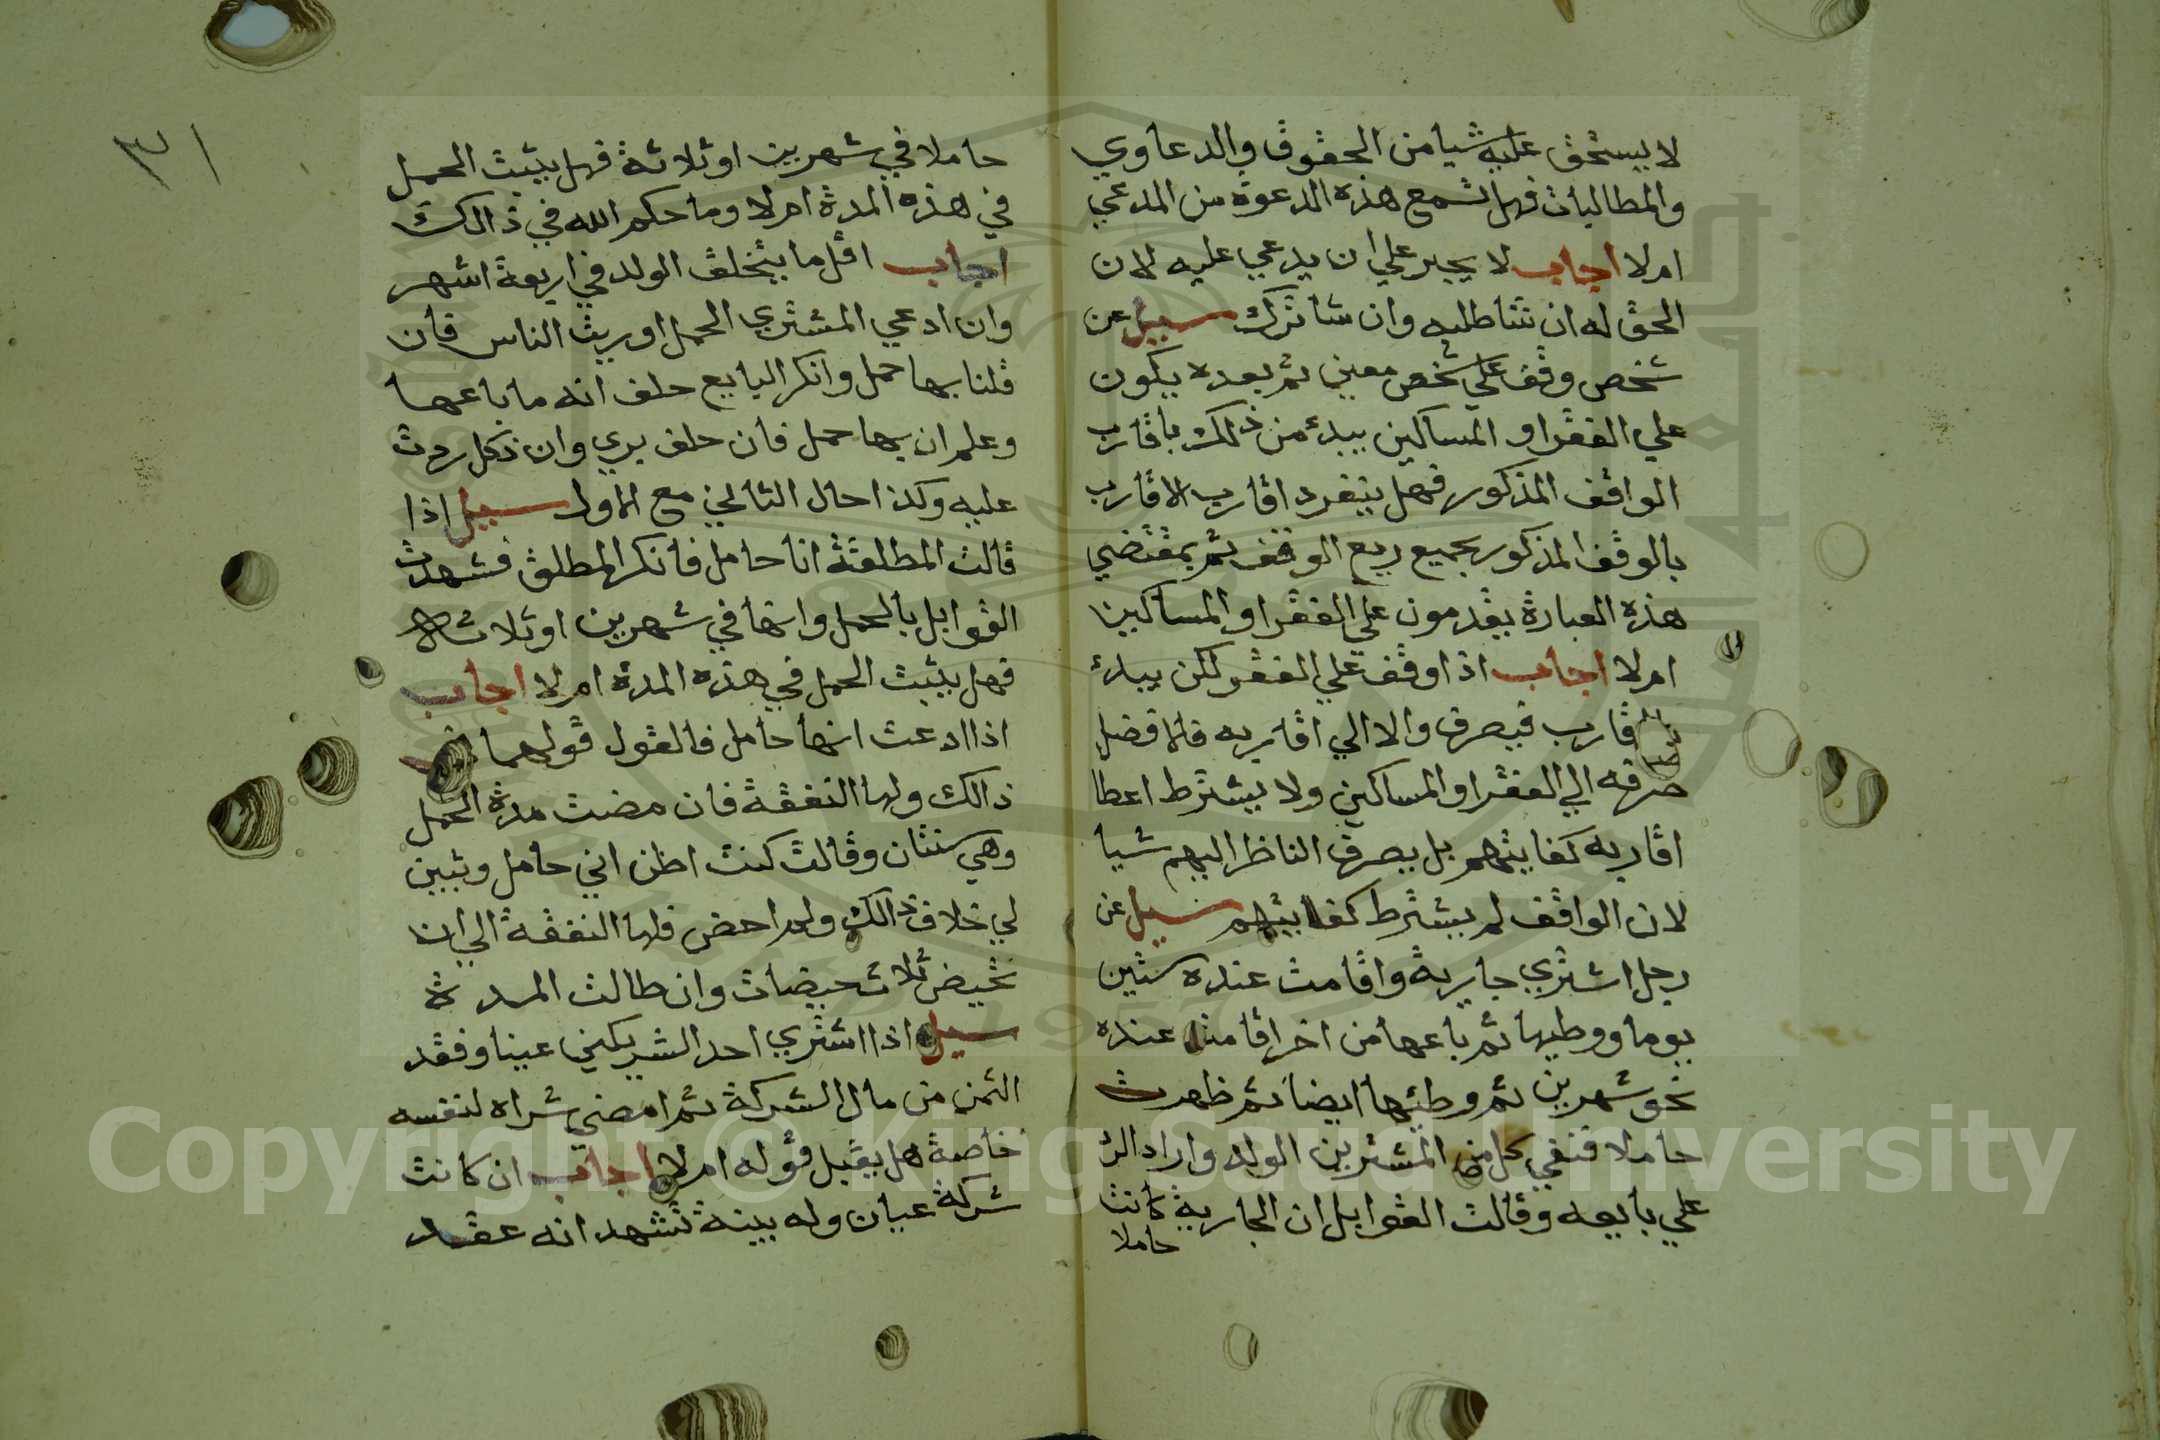 لا يستحق عليه شيا من الحقوق والدعاوي
والمطالبات فهل تسمع هذه الدعوة من المدعي
ام لا اجاب لا يجبر علي ان يدعي عليه لان
الحق له ان شا طلبه وان شا ترك سيل عن
شخص وقف علي شخص معين ثم بعده يكون
علي الفقرا و المساكين يبدء من ذلك باقارب
الواقف المذكور فهل ينفرد اقارب الاقارب
بالوقف المذكور بجميع ريع الوقف ثم بمقتضي
هذه العبارة يقدمون علي الفقرا والمساكين
ام لا اجاب اذا وقف علي الفقر لكن يبدء
قارب فيصرف والا الي اقاربه فلا فضل
صرفه الي الفقرا والمساكين ولا يشترط اعطا
اقاربه كفايتهم بل يصرف الناظر اليهم شيا
لان الواقف لم يشترط كفايتهم سيل عن
رجل اشتري جارية واقامت عنده ستين
يوما ووطيها ثم باعها من اخر اقامت عنده
نحو شهرين ثم وطئها ايضا ثم ظهرت
حاملا فنفي كل من المشترين الولد واراد الرد
علي بايعه وقالت القوابل ان الجارية كانت
حاملا
٣١
حاملا في شهرين او ثلاثة فهل يثبت الحمل
في هذه المدة ام لا وما حكم الله في ذالك
اجاب اقل ما يتخلق الولد في اربعة اشهر
وان ادعي المشتري الحمل اوريت الناس فان
قلنا بها حمل وانكر البايع حلف انه ما باعها
وعلم ان بها حمل فان حلف بري وان نكل ردت
عليه وكذا حال الثاني مع الاول سيل اذا
قالت المطلقة انا حامل فانكر المطلق فشهدت
القوابل بالحمل وانها في شهرين او ثلاثة
فهل يثبت الحمل في هذه المدة ام لا اجاب
اذا ادعت انها حامل فالقول قولهما
ذالك ولها النفقة فان مضت مدة الحمل
وهي سنتان وقالت كنت اظن اني حامل وتبين
لي خلاف ذالك ولم احض فلها النفقة الي ان
تحيض ثلاث حيضات وان طالت المدة
سيل اذا اشتري احد الشريكين عينا وفقد
الثمن من مال الشركة ثم امضي شراه لنفسه
خاصة هل يقبل قوله ام لا اجاب ان كانت
شركة عيان وله بينة تشهد انه عقد
Copyright © King Saud University